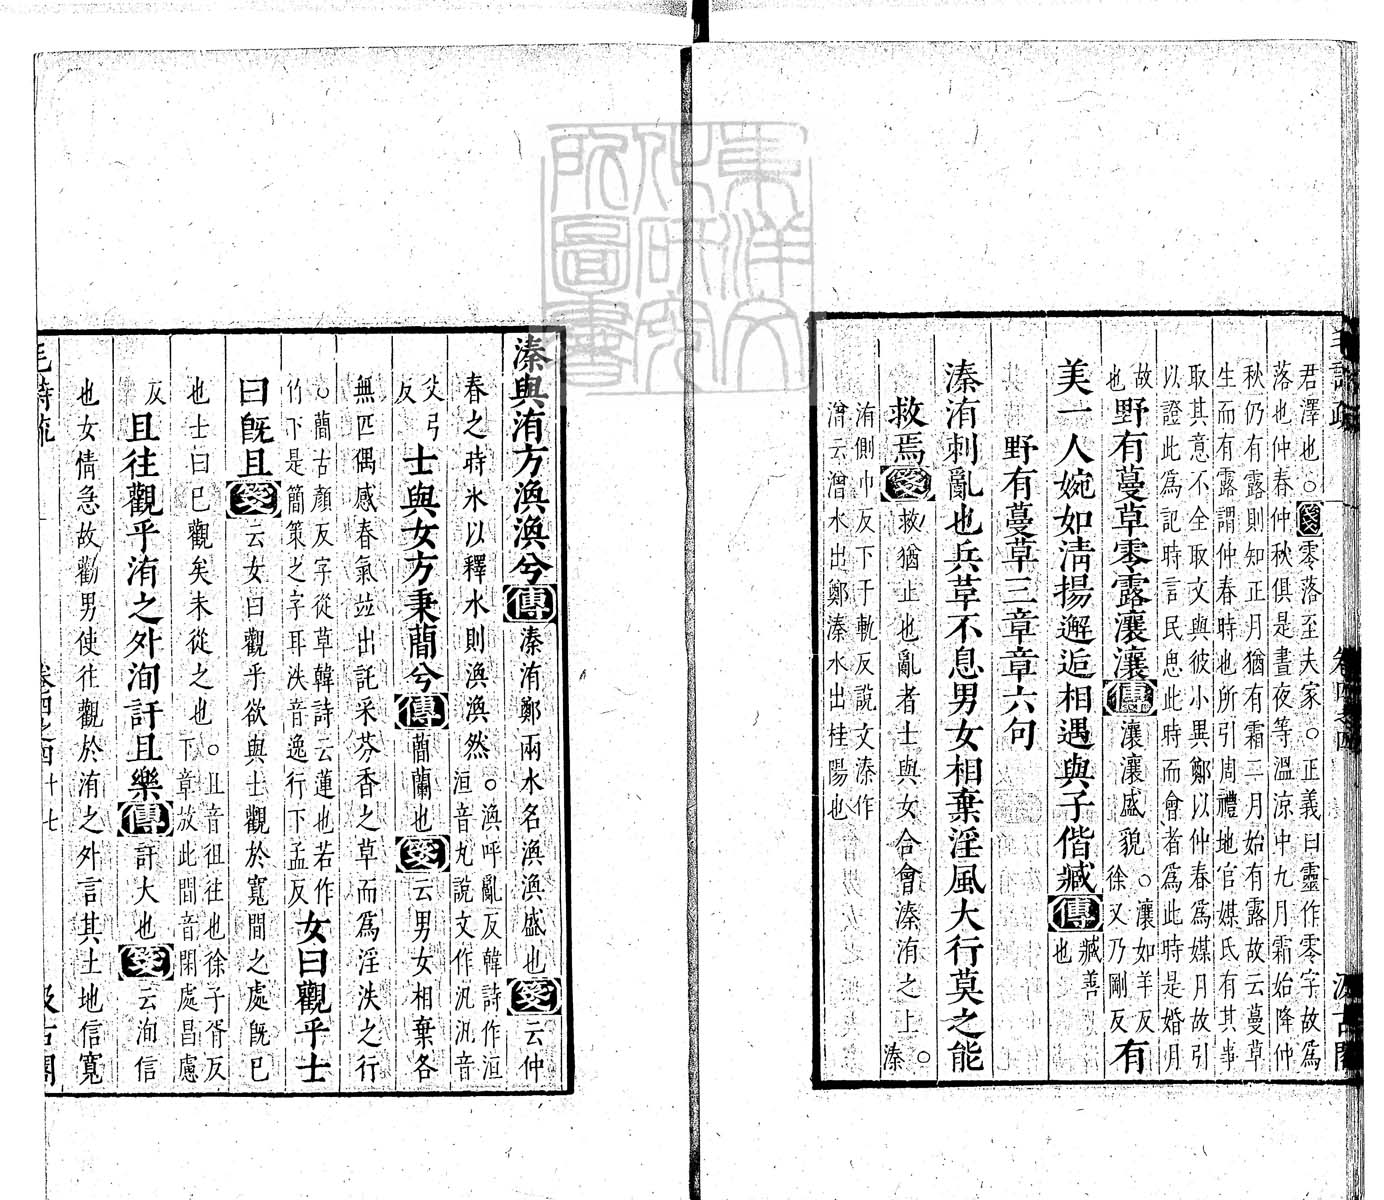 君澤也○箋零落至夫家○正義曰靈作零字故爲
落也仲春仲秋俱是晝夜等溫涼中九月霜始降仲
秋仍有露則知正月猶有霜二月始有露故云蔓草
生而有露謂仲春時也所引周禮地官媒氏有其事
取其意不全取文與彼小異鄭以仲春爲媒月故引
以證此爲記時言民思此時而會者爲此時是婚月
故
也野有蔓草零露瀼瀼傳瀼瀼盛貌○瀼如羊反
徐又乃剛反有
美一人婉如清揚邂逅相遇與子偕臧傳臧善
也
野有蔓草三章章六句
溱洧刺亂也兵革不息男女相棄淫風大行莫之能
救焉箋救猶止也亂者士與女合會溱洧之上○
溱
洧側巾反下于軌反說文溱作
潧云潧水出鄭溱水出桂陽也
毛詩疏 卷四之四 汲古閣
溱與洧方渙渙兮傳溱洧鄭兩水名渙渙盛也箋云仲
春之時冰以釋水則渙渙然○渙呼亂反韓詩作洹
洹音丸說文作汎汎音
父弓
反士與女方秉蕑兮傳蕑蘭也箋云男女相棄各
無匹偶感春氣並出託采芬香之草而爲淫泆之行
○蕑古顏反字從草韓詩云蓮也若作
竹下是簡策之字耳泆音逸行下孟反女曰觀乎士
曰旣且箋云女曰觀乎欲與士觀於寬閒之處旣已
也士曰已觀矣未從之也○且音徂往也徐子胥反
下章放此閒音閑處昌慮
反且往觀乎洧之外洵訏且樂傳訏大也箋云洵信
也女情急故勸男使往觀於洧之外言其土地信寬
毛詩疏 卷四之四 十七 汲古閣
東洋文化研究所圖書